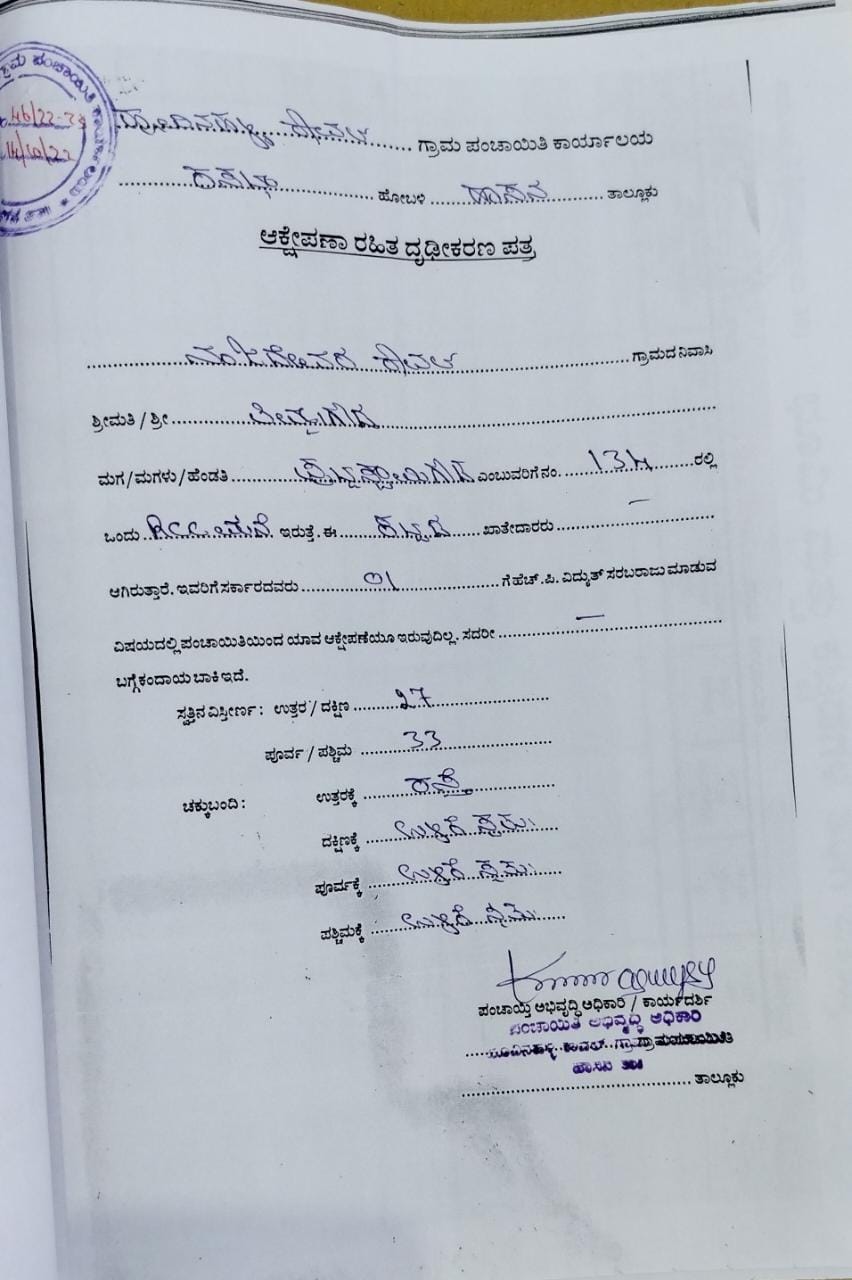 ಗ್ರಾಮ ಪಂಚಾಯಿತಿ
46/22-23
14/10/22
ಕಾವಲ್ ಗ್ರಾಮ ಪಂಚಾಯಿತಿ ಕಾರ್ಯಾಲಯ
ಕಸಬಾ ಹೋಬಳಿ ಹಾಸನ ತಾಲ್ಲೂಕು
ಆಕ್ಷೇಪಣಾ ರಹಿತ ದೃಢೀಕರಣ ಪತ್ರ
ಕಾವಲ್ ಗ್ರಾಮದ ನಿವಾಸಿ
ಶ್ರೀಮತಿ / ಶ್ರೀ
ಮಗ/ಮಗಳು/ಹೆಂಡತಿ ಎಂಬುವರಿಗೆ ನಂ. 134 ರಲ್ಲಿ
ಒಂದು RCC ಮನೆ ಇರುತ್ತೆ. ಈ ಖಾತೇದಾರರು —
ಆಗಿರುತ್ತಾರೆ. ಇವರಿಗೆ ಸರ್ಕಾರದವರು 01 ಗೆ ಹೆಚ್.ಪಿ. ವಿದ್ಯುತ್ ಸರಬರಾಜು ಮಾಡುವ
ವಿಷಯದಲ್ಲಿ ಪಂಚಾಯಿತಿಯಿಂದ ಯಾವ ಆಕ್ಷೇಪಣೆಯೂ ಇರುವುದಿಲ್ಲ. ಸದರೀ —
ಬಗ್ಗೆ ಕಂದಾಯ ಬಾಕಿ ಇದೆ.
ಸ್ವತ್ತಿನ ವಿಸ್ತೀರ್ಣ : ಉತ್ತರ / ದಕ್ಷಿಣ 27
ಪೂರ್ವ / ಪಶ್ಚಿಮ 33
ಚಕ್ಕುಬಂದಿ : ಉತ್ತರಕ್ಕೆ ರಸ್ತೆ
ದಕ್ಷಿಣಕ್ಕೆ ಉಳಿಕೆ
ಪೂರ್ವಕ್ಕೆ ಉಳಿಕೆ
ಪಶ್ಚಿಮಕ್ಕೆ ಉಳಿಕೆ
ಪಂಚಾಯ್ತಿ ಅಭಿವೃದ್ಧಿ ಅಧಿಕಾರಿ / ಕಾರ್ಯದರ್ಶಿ
ಪಂಚಾಯಿತಿ ಅಭಿವೃದ್ಧಿ ಅಧಿಕಾರಿ
ಕಾವಲ್ ಗ್ರಾಮ ಪಂಚಾಯಿತಿ
ಹಾಸನ ತಾ॥
ತಾಲ್ಲೂಕು